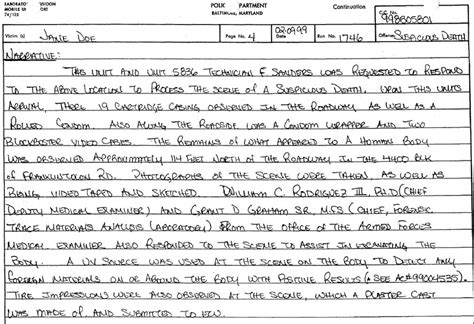 LABORATORY DIVISION POLICE DEPARTMENT Continuation CC No.
MOBILE UNIT REPORT BALTIMORE, MARYLAND 998805801
74/133
Victim(s) JANE DOE Page No. 4 020999 Run No. 1746 Offense SUSPICIOUS DEATH
NARRATIVE:
THIS UNIT AND UNIT 5836 TECHNICIAN F SANDERS WAS REQUESTED TO RESPOND
TO THE ABOVE LOCATION TO PROCESS THE SCENE OF A SUSPICIOUS DEATH. UPON THIS UNITS
ARRIVAL, THERE 19 CARTRIDGE CASING OBSERVED IN THE ROADWAY, AS WELL AS A
ROLLED CONDOM. ALSO ALONG THE ROADSIDE WAS A CONDOM WRAPPER AND TWO
BLOCKBUSTER VIDEO CASES. THE REMAINS OF WHAT APPEARED TO A HUMAN BODY
WAS OBSERVED APPROXIMATELY 114 FEET NORTH OF THE ROADWAY IN THE 4400 BLK
OF FRANKLINTOWN RD. PHOTOGRAPHS OF THE SCENE WERE TAKEN, AS WELL AS
BEING VIDEO TAPED AND SKETCHED. WILLIAM C. RODRIGUEZ III, PH.D (CHIEF
DEPUTY MEDICAL EXAMINER) AND GRANT D GRAHAM SR. MFS (CHIEF, FORENSIC
TRACE MATERIALS ANALYSIS LABORATORY) FROM THE OFFICE OF THE ARMED FORCES
MEDICAL EXAMINER ALSO RESPONDED TO THE SCENE TO ASSIST IN EXCAVATING THE
BODY. A UV SOURCE WAS USED AT THE SCENE ON THE BODY TO DETECT ANY
FOREIGN MATERIALS ON OR AROUND THE BODY WITH POSITIVE RESULTS (SEE AC#99004535).
TIRE IMPRESSIONS WERE ALSO OBSERVED AT THE SCENE, WHICH A PLASTER CAST
WAS MADE OF AND SUBMITTED TO ECU.